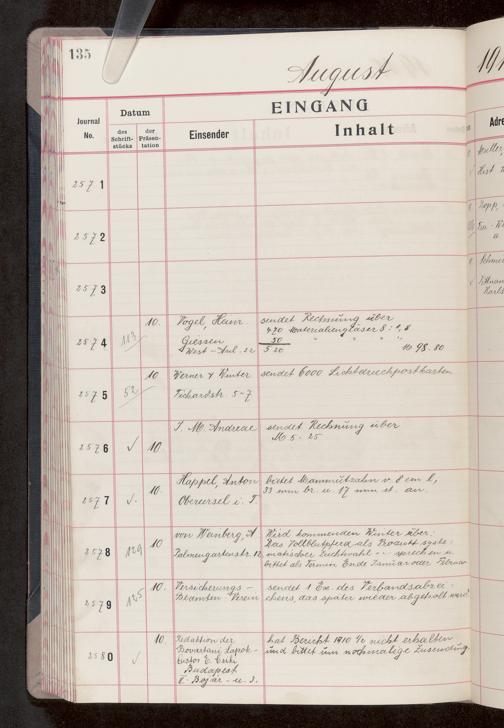 135
August
191
EINGANG
Journal No.
Datum
des Schriftstücks
der Präsentation
Einsender
Inhalt
2571
2572
2573
2574 113 10. Vogel, Heinr. sendet Rechnung über
470 Materialiengläser 8:1,8
Giessen 50 " " " "
West-Anl. 22 520 M 98.80
2575 52 10. Werner & Winter sendet 6000 Lichtdruckpostkarten
Fichardstr. 5-7
2576 ✓ 10. J. M. Andreae sendet Rechnung über
M. 5.25
2577 ✓ 10. Happel, Anton bietet Mammutzahn v. 8 cm l,
Oberursel i. T. 33 mm br. u. 17 mm st. an.
2578 129 10 von Weinberg, A Wird kommenden Winter über:
Palmengartenstr. 12 Das Vollblutpferd als Produkt syste-
matischer Zuchtwahl -- sprechen u.
bittet als Termin Ende Januar oder Februar
2579 125 10. Versicherungs- sendet 1 Ex. des Verbandsabzei-
Beamten-Verein chens, das später wieder abgeholt wird
2580 ✓ 10. Redaktion der hat Bericht 1910 nicht erhalten
Rovartani Lapok- und bittet um nochmalige Zusendung.
Budapest